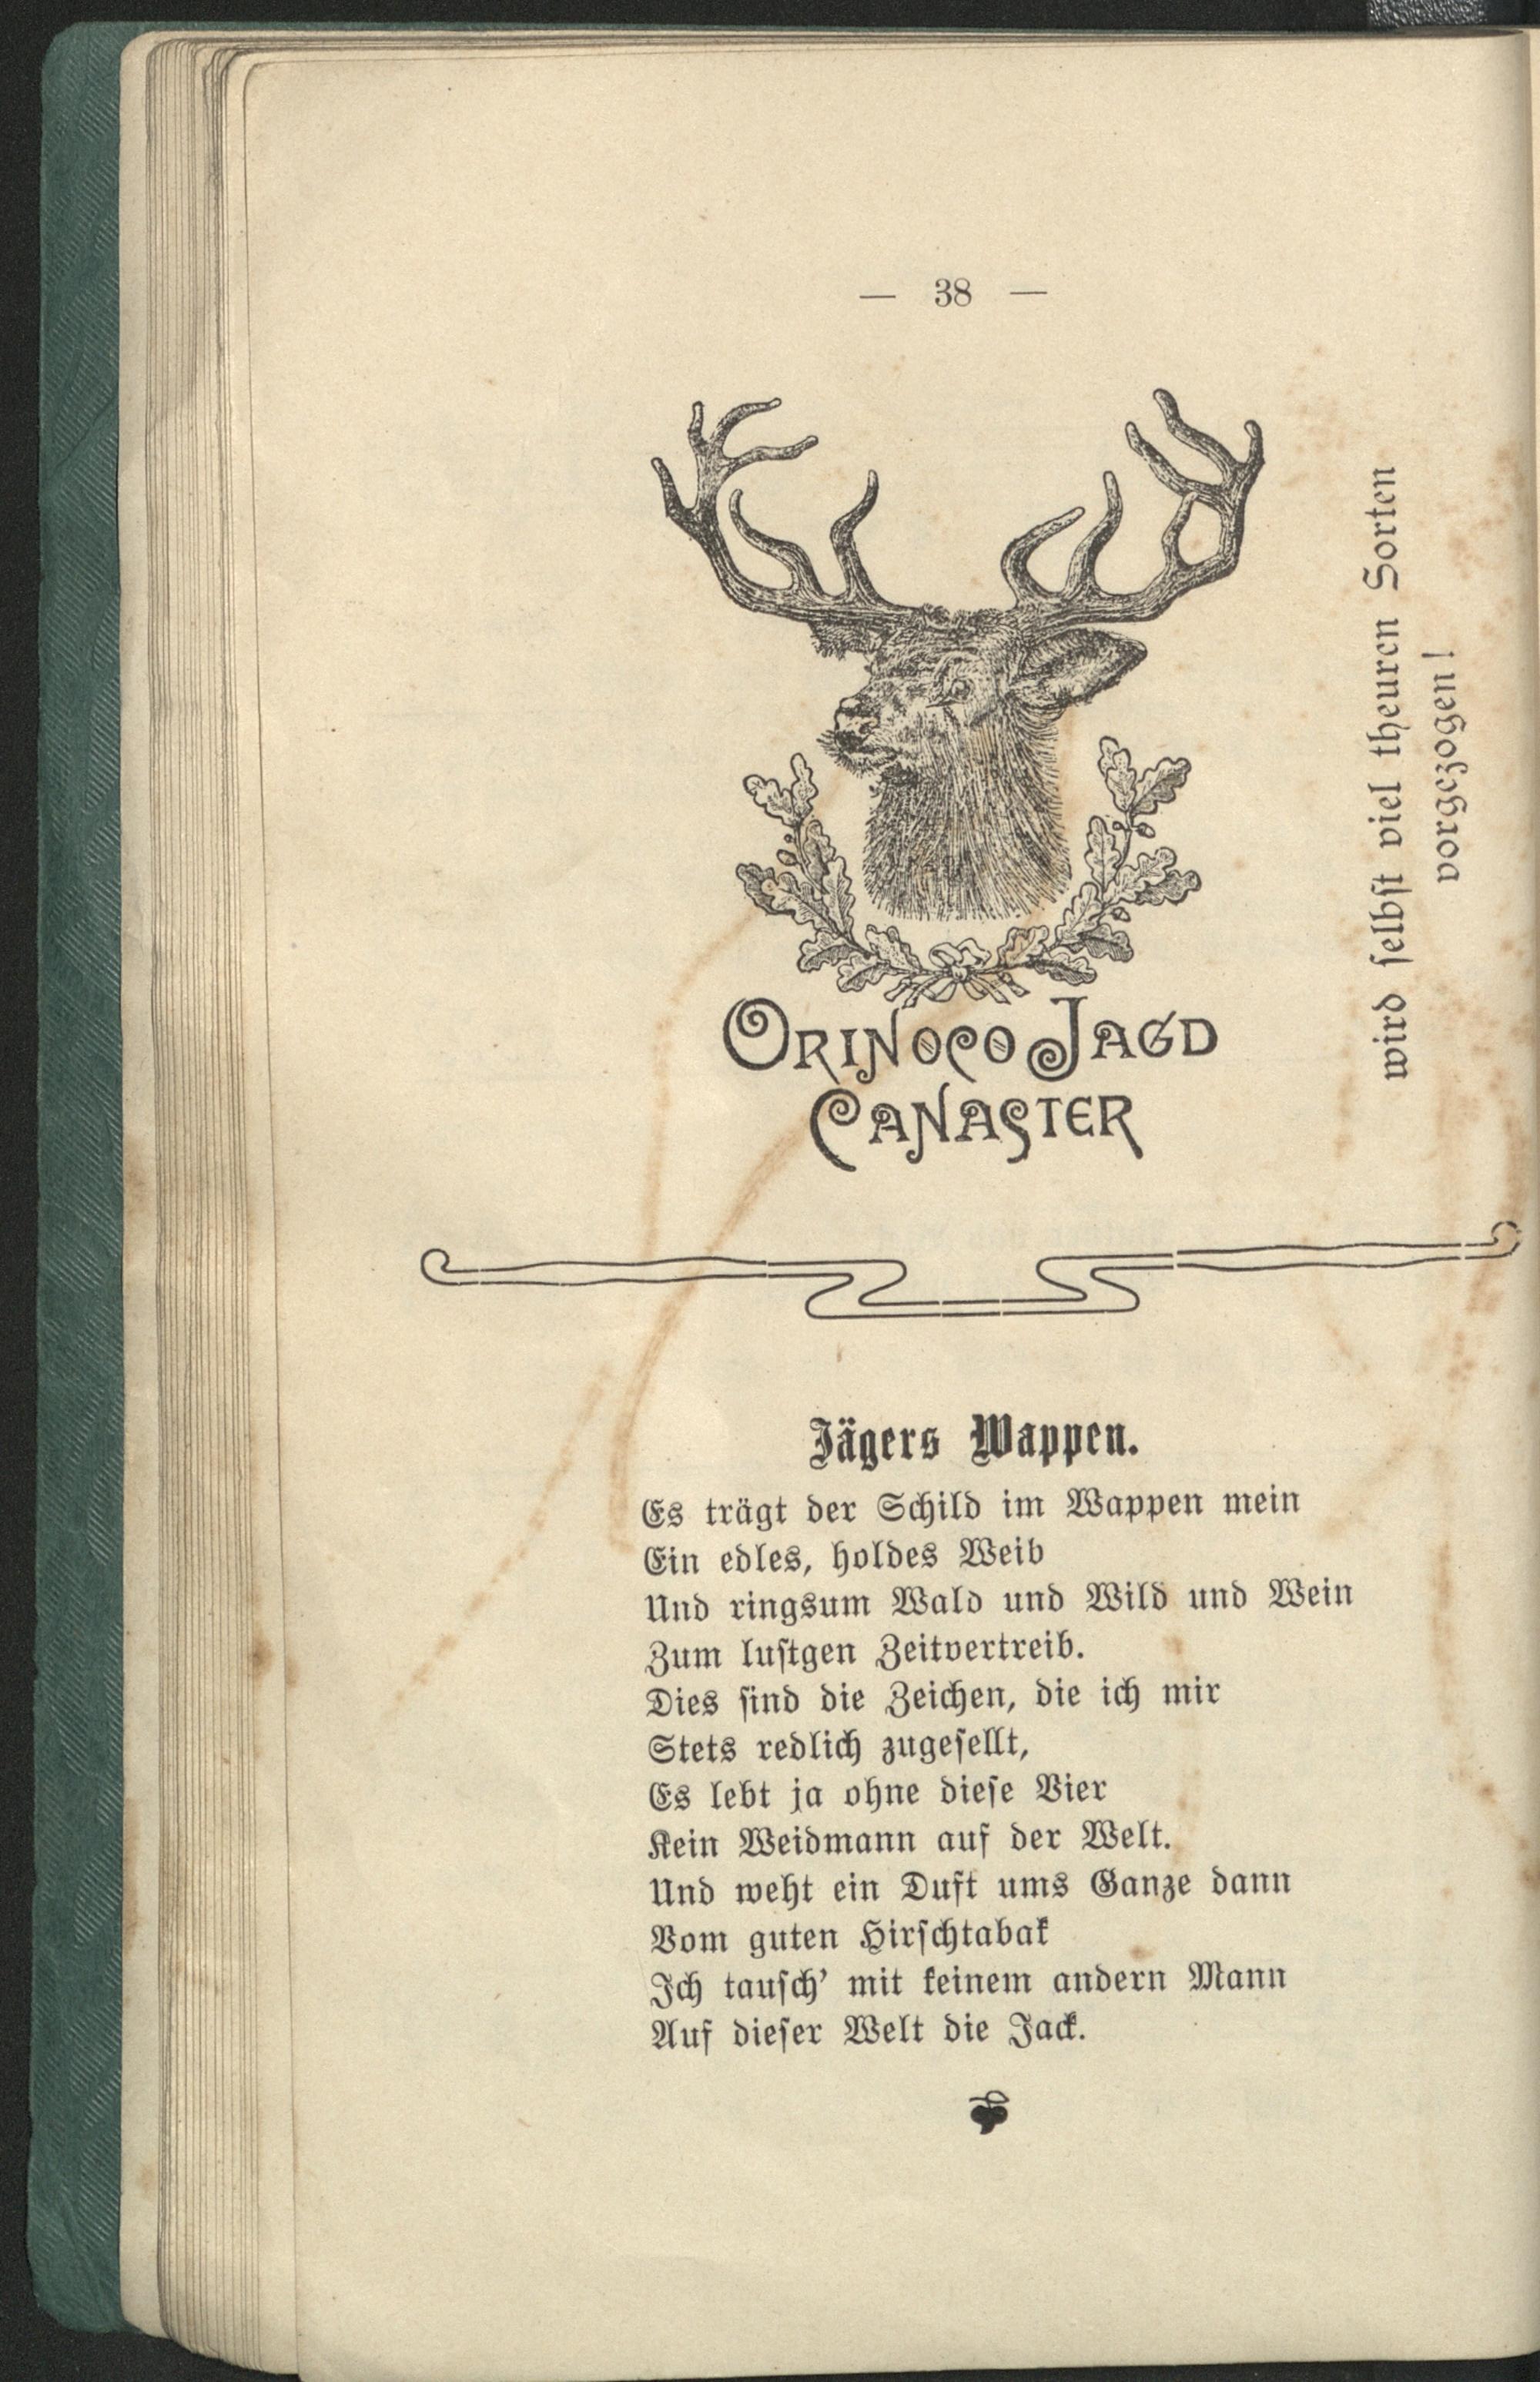 — 38 —
ORINOCO JAGD
CANASTER
wird selbst viel theuren Sorten
vorgezogen!
Jägers Wappen.
Es trägt der Schild im Wappen mein
Ein edles, holdes Weib
Und ringsum Wald und Wild und Wein
Zum lustgen Zeitvertreib.
Dies sind die Zeichen, die ich mir
Stets redlich zugesellt,
Es lebt ja ohne diese Vier
Kein Weidmann auf der Welt.
Und weht ein Duft ums Ganze dann
Vom guten Hirschtabak
Ich tausch' mit keinem andern Mann
Auf dieser Welt die Jack.